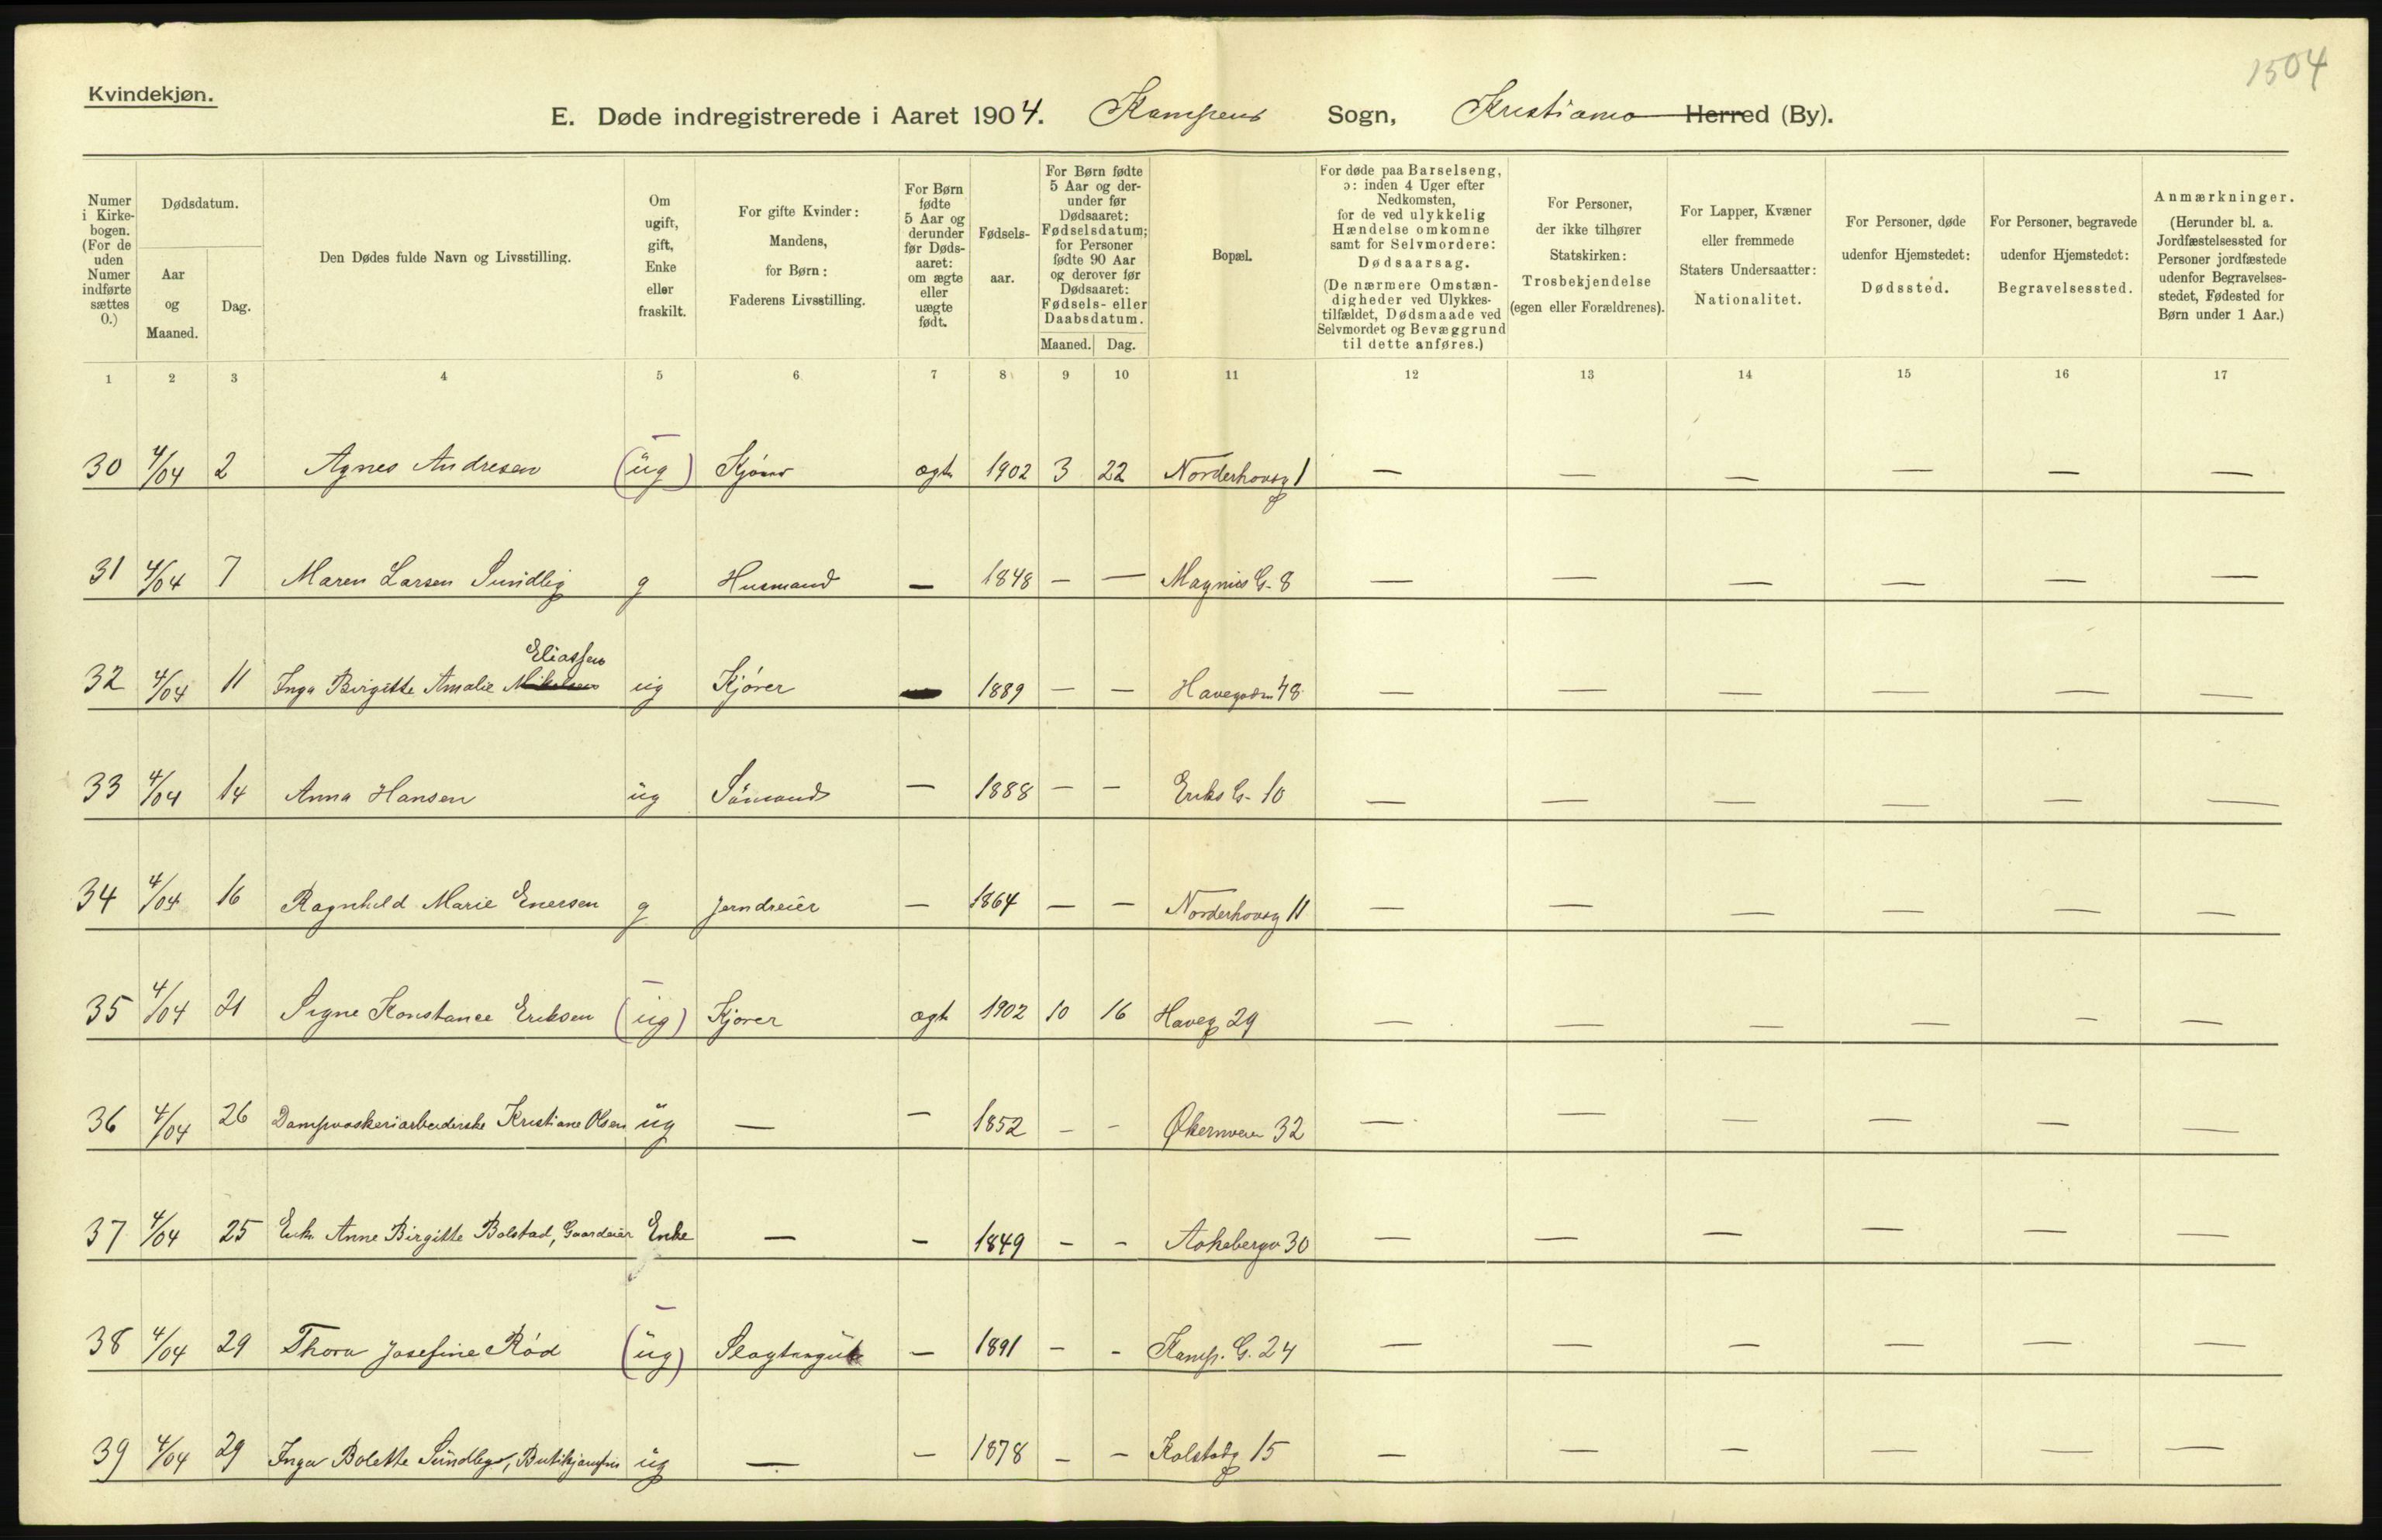 1504
Kvindekjøn.
E. Døde indregistrerede i Aaret 1904. Kampens Sogn, Kristiania Herred (By).
Numer i Kirkebogen. (For de uden Numer indførte sættes 0.)
Dødsdatum.
Aar og Maaned.
Dag.
Den Dødes fulde Navn og Livsstilling.
Om ugift, gift, Enke eller fraskilt.
For gifte Kvinder: Mandens, for Børn: Faderens Livsstilling.
For Børn fødte 5 Aar og derunder før Dødsaaret: om ægte eller uægte født.
Fødselsaar.
For Børn fødte 5 Aar og derunder før Dødsaaret: Fødselsdatum; for Personer fødte 90 Aar og derover før Dødsaaret: Fødsels- eller Daabsdatum.
Maaned. Dag.
Bopæl.
For døde paa Barselseng, ɔ: inden 4 Uger efter Nedkomsten, for de ved ulykkelig Hændelse omkomne samt for Selvmordere: Dødsaarsag. (De nærmere Omstændigheder ved Ulykkestilfældet, Dødsmaade ved Selvmordet og Bevæggrund til dette anføres.)
For Personer, der ikke tilhører Statskirken: Trosbekjendelse (egen eller Forældrenes).
For Lapper, Kvæner eller fremmede Staters Undersaatter: Nationalitet.
For Personer, døde udenfor Hjemstedet: Dødssted.
For Personer, begravede udenfor Hjemstedet: Begravelsessted.
Anmærkninger. (Herunder bl. a. Jordfæstelsessted for Personer jordfæstede udenfor Begravelsesstedet, Fødested for Børn under 1 Aar.)
1 2 3 4 5 6 7 8 9 10 11 12 13 14 15 16 17
30 4/04 2 Agnes Andresen (ug) ægte 1902 3 22 Norderhovsg 1 — — — — — —
31 4/04 7 Maren Larsen Sundlig g Husmand — 1848 — — Magnus G. 8 — — — — — —
Eliassen
32 4/04 11 Inga Birgitte Amalie Mikelsen ug Kjører 1889 — — Havegaden 48 — — — — — —
33 4/04 14 Anna Hansen ug Sömand — 1888 — — Eriks G. 10 — — — — — —
34 4/04 16 Ragnhild Marie Enersen g Jerndreier — 1864 — — Norderhovsg 11 — — — — — —
35 4/04 21 Signe Konstance Eriksen (ug) Kjører ægte 1902 10 16 Haveg 29 — — — — — —
36 4/04 26 Dampvaskeriarbeiderske Kristiane Olsen ug — — 1852 — — Økernveien 32 — — — — — —
37 4/04 25 Enke Anne Birgitte Bolstad, Gaardeier Enke — — 1849 — — Aakebergv 30 — — — — — —
38 4/04 29 Thora Josefine Röd (ug) — 1891 — — Kamp. G. 24 — — — — — —
39 4/04 29 Inga Bolette Sundbye, Butikjomfru ug — — 1878 — — Kolstadg 15 — — — — — —